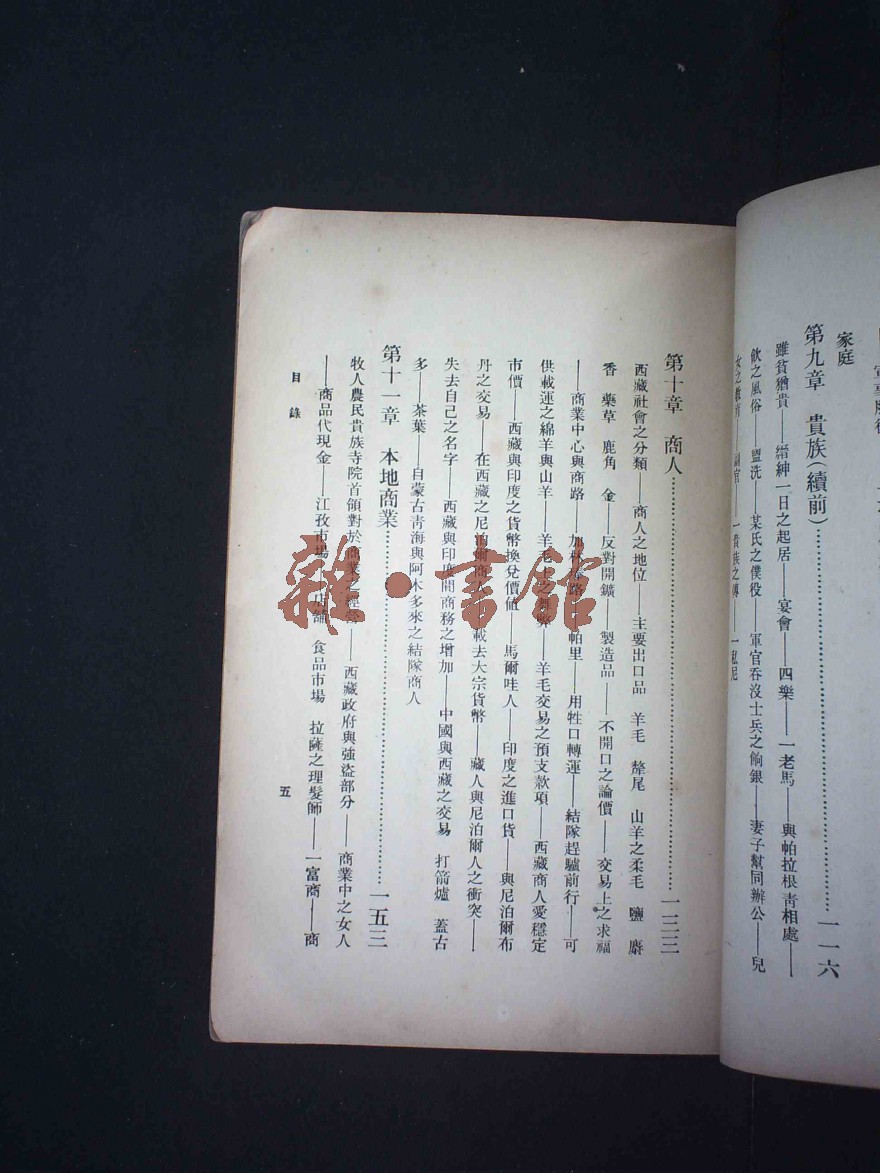 家庭
第九章　貴族（續前）……一一六
雖貧猶貴——縉紳一日之起居——宴會——四樂——一老馬——與帕拉根青相處——
飲之風俗——盥洗——某氏之僕役——軍官吞沒士兵之餉銀——妻子幫同辦公——兒
第十章　商人……一三三
西藏社會之分類——商人之地位——主要出口品　羊毛　犛尾　山羊之柔毛　鹽　麝
香　藥草　鹿角　金——反對開鑛——製造品——不開口之論價——交易上之求福
——商業中心與商路——加林　路——帕里——用牲口轉運——結隊趕驢前行——可
供載運之綿羊與山羊——羊毛　之　弊——羊毛交易之預支款項——西藏商人愛穩定
市價——西藏與印度之貨幣換兌價値——馬爾哇人——印度之進口貨——與尼泊爾布
丹之交易——在西藏之尼泊爾商人　載去大宗貨幣——藏人與尼泊爾人之衝突——
失去自己之名字——西藏與印度間商務之增加——中國與西藏之交易　打箭爐　蓋古
多——茶葉——自蒙古青海與阿木多來之結隊商人
第十一章　本地商業……一五三
牧人農民貴族寺院首領對於商業之經營——西藏政府與強盜部分——商業中之女人
——商品代現金——江孜市場——店舖　食品市場　拉薩之理髮師——一富商——商
目錄
五
雜·書館